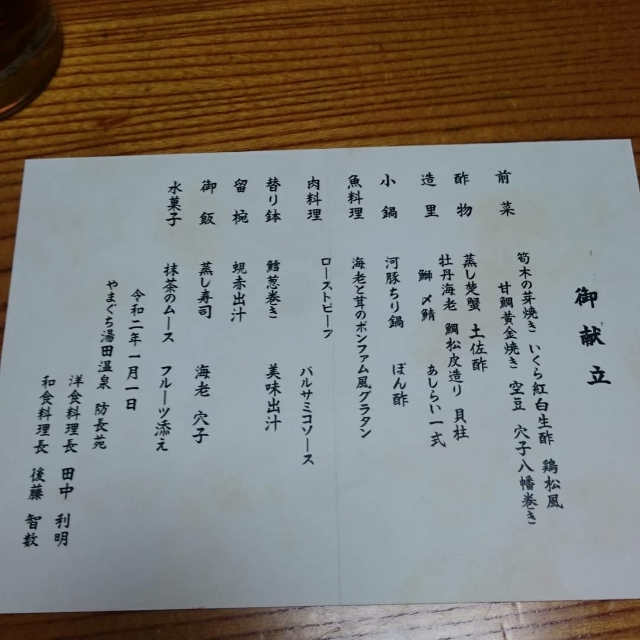 御献立
前菜 筍木の芽焼き いくら紅白生酢 鶏松風
甘鯛黄金焼き 空豆 穴子八幡巻き
酢物 蒸し楚蟹 土佐酢
造里 牡丹海老 鯛松皮造り 貝柱
鰤 〆鯖 あしらい一式
小鍋 河豚ちり鍋 ぽん酢
魚料理 海老と茸のボンファム風グラタン
肉料理 ローストビーフ バルサミコソース
替り鉢 鱈葱巻き 美味出汁
留椀 蜆赤出汁
御飯 蒸し寿司 海老 穴子
水菓子 抹茶のムース フルーツ添え
令和二年一月一日
やまぐち湯田温泉 防長苑
洋食料理長 田中 利明
和食料理長 後藤 智数